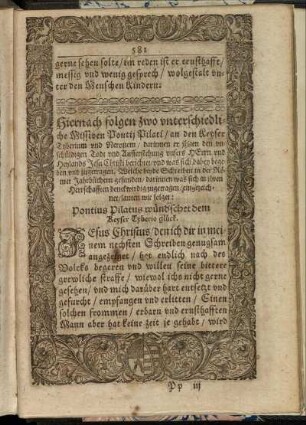 581
gerne sehen solte / im reden ist er ernsthafft /
messig vnd wenig gesprech / wolgestalt vn-
ter den Menschen Kindern:
Hiernach folgen zwo vnterschiedli-
che Missiven Pontij Pilati / an den Keyser
Tyberium vnd Neronem / darinnen er jhnen den vn-
schüldigen Todt vnd Aufferstehung vnsers HErrn vnd
Heylands Jesu Christi berichtet / vnd was sich dabey bege-
ben vnd zugetragen / Welche beyde Schreiben in der Rö-
mer Jahrbüchern gefunden / darinnen was sich in jhren
Herrschafften denckwirdig zugetragen / eingezeich-
net / lauten wie folget:
Pontius Pilatus wündschet dem
Keyser Tyberio glück.
JEsus Christus den ich dir in mei-
nem nechsten Schreiben genugsam
angezeiget / hat endlich nach des
Volcks begeren vnd willen seine bittere
grewliche straffe / wiewol ichs nicht gerne
gesehen / vnd mich darüber hart entsetzt vnd
gefurcht / empfangen vnd erlitten / Einen
solchen frommen / erbarn vnd ernsthafften
Mann aber hat keine zeit je gehabt / wird
Pp iij